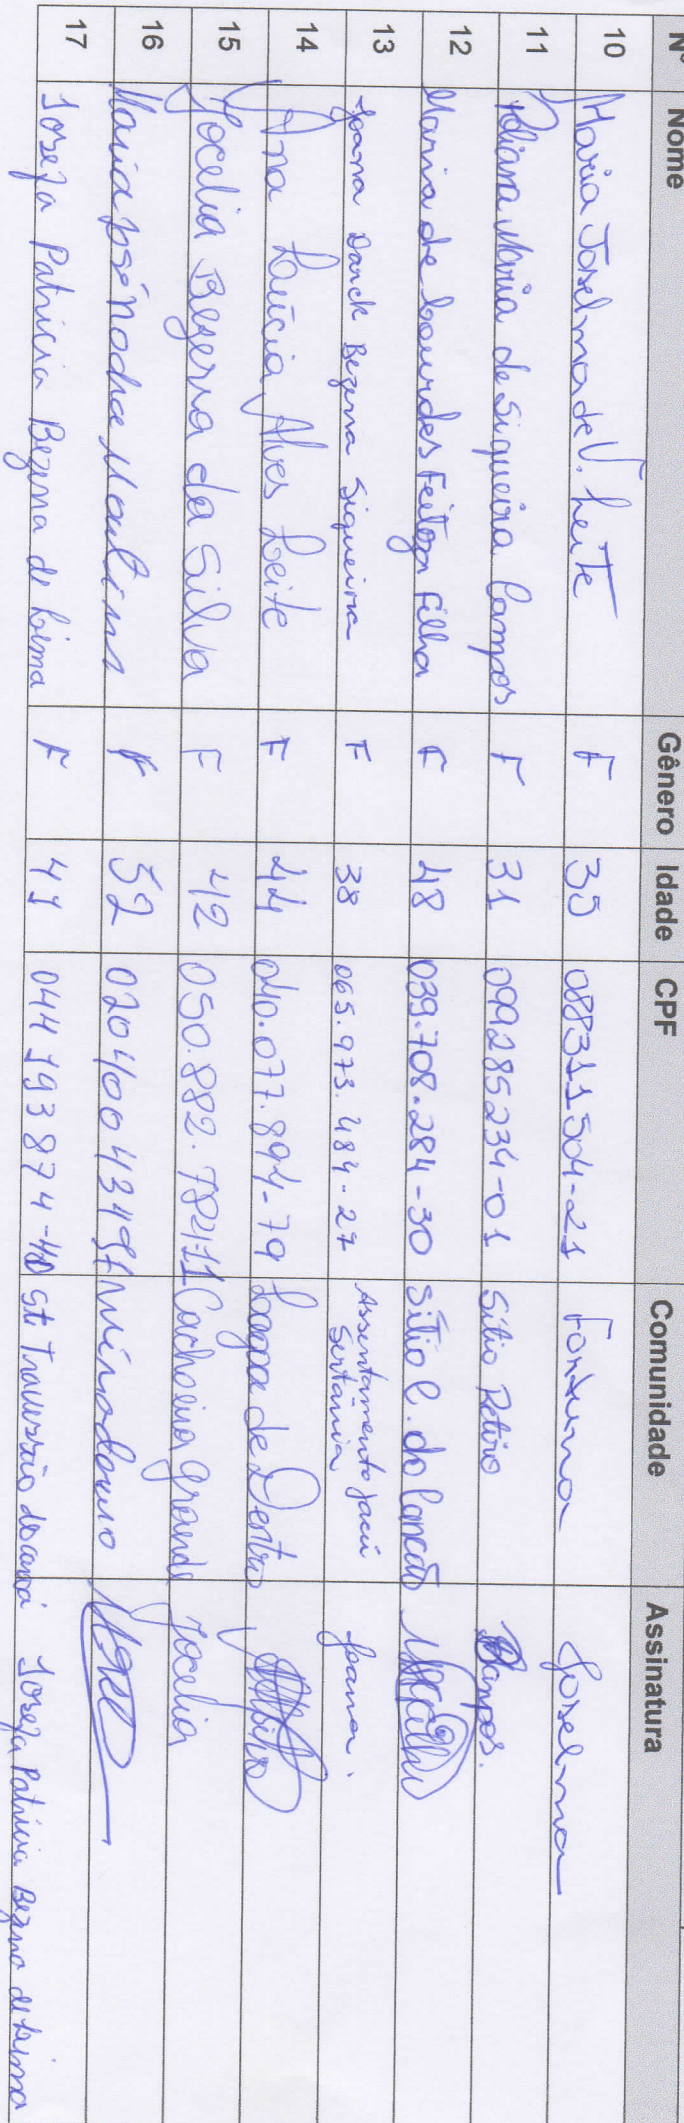 Nº Nome Gênero Idade CPF Comunidade Assinatura
10 Maria Joselma de V. Leite F 35 088311504-21 Fortuna Joselma
11 Poliana Maria de Siqueira Campos F 31 099285234-01 Sítio Retiro Campos.
12 Maria de Lourdes Feitoza Filha F 48 039.708.284-30 Sítio C. do
13 Joana Darck Bezerra Siqueira F 38 065.973.484-27 Assentamento Jacú Sertânia Joana.
14 Ana Lúcia Alves Leite F 44 040.077.894-79 Lagoa de Dentro
15 Jocelia Bezerra da Silva F 42 050.882.784-11 Cachoeira grande Jocelia
16 Maria José F 52
17 Josefa Patricia Bezerra de Lima F 41 Josefa Patricia Bezerra de Lima